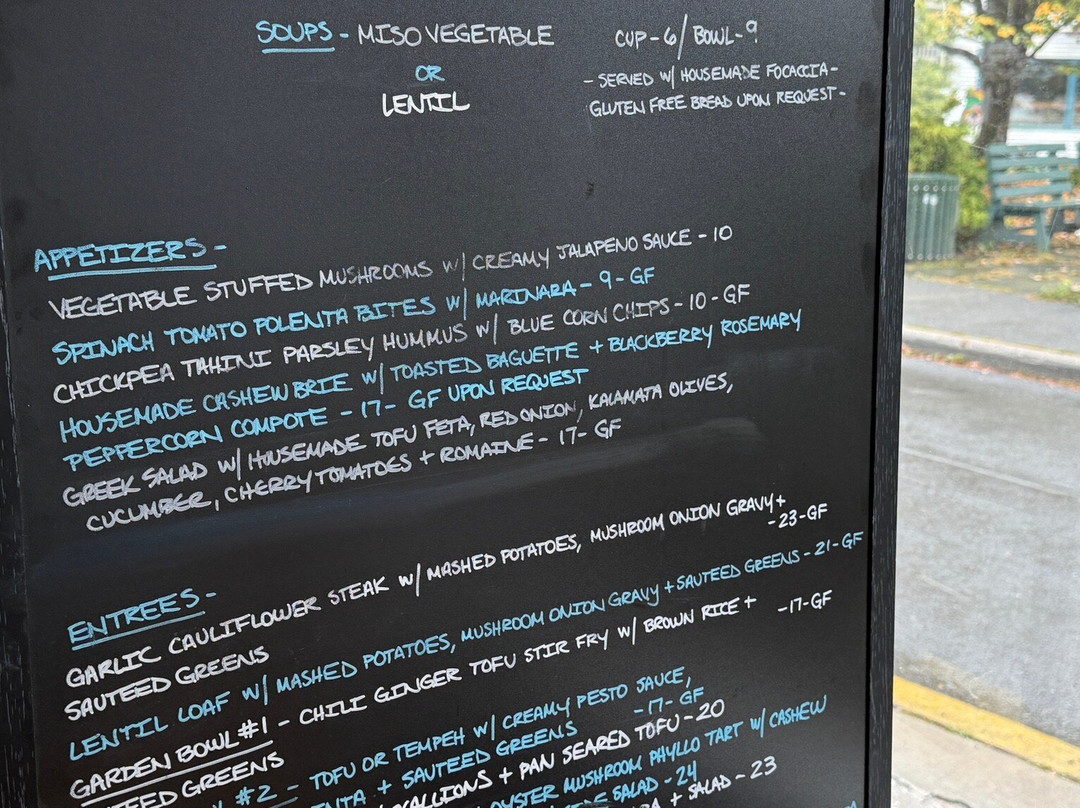 SOUPS - MISO VEGETABLE CUP-6/BOWL-9
OR
LENTIL
- SERVED W/ HOUSEMADE FOCACCIA -
GLUTEN FREE BREAD UPON REQUEST -
APPETIZERS -
VEGETABLE STUFFED MUSHROOMS W/ CREAMY JALAPENO SAUCE - 10
SPINACH TOMATO POLENTA BITES W/ MARINARA - 9 - GF
CHICKPEA TAHINI PARSLEY HUMMUS W/ BLUE CORN CHIPS - 10 - GF
HOUSEMADE CASHEW BRIE W/ TOASTED BAGUETTE + BLACKBERRY ROSEMARY
PEPPERCORN COMPOTE - 17 - GF UPON REQUEST
GREEK SALAD W/ HOUSEMADE TOFU FETA, RED ONION, KALAMATA OLIVES,
CUCUMBER, CHERRY TOMATOES + ROMAINE - 17 - GF
ENTREES -
GARLIC CAULIFLOWER STEAK W/ MASHED POTATOES, MUSHROOM ONION GRAVY +
SAUTEED GREENS - 23 - GF
LENTIL LOAF W/ MASHED POTATOES, MUSHROOM ONION GRAVY + SAUTEED GREENS - 21 - GF
GARDEN BOWL #1 - CHILI GINGER TOFU STIR FRY W/ BROWN RICE +
GREENS - 17 - GF
#2 - TOFU OR TEMPEH W/ CREAMY PESTO SAUCE,
+ SAUTEED GREENS - 17 - GF
+ PAN SEARED TOFU - 20
OYSTER MUSHROOM PHYLLO TART W/ CASHEW
SALAD - 24
+ SALAD - 23